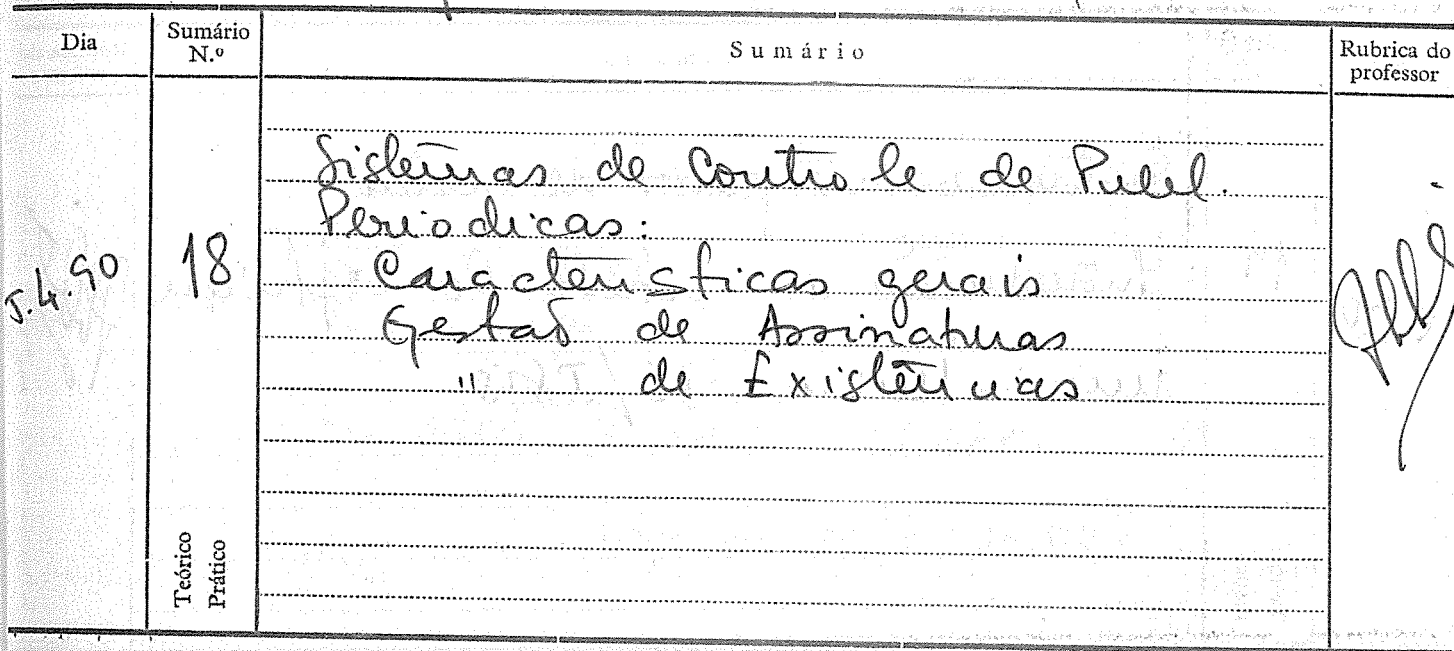 Dia
Sumário N.º
Sumário
Rubrica do professor
5.4.90
18
Sistemas de Controle de Publ.
Periodicas:
Características gerais
Gestão de Assinaturas
" de Existências
Teórico
Prático